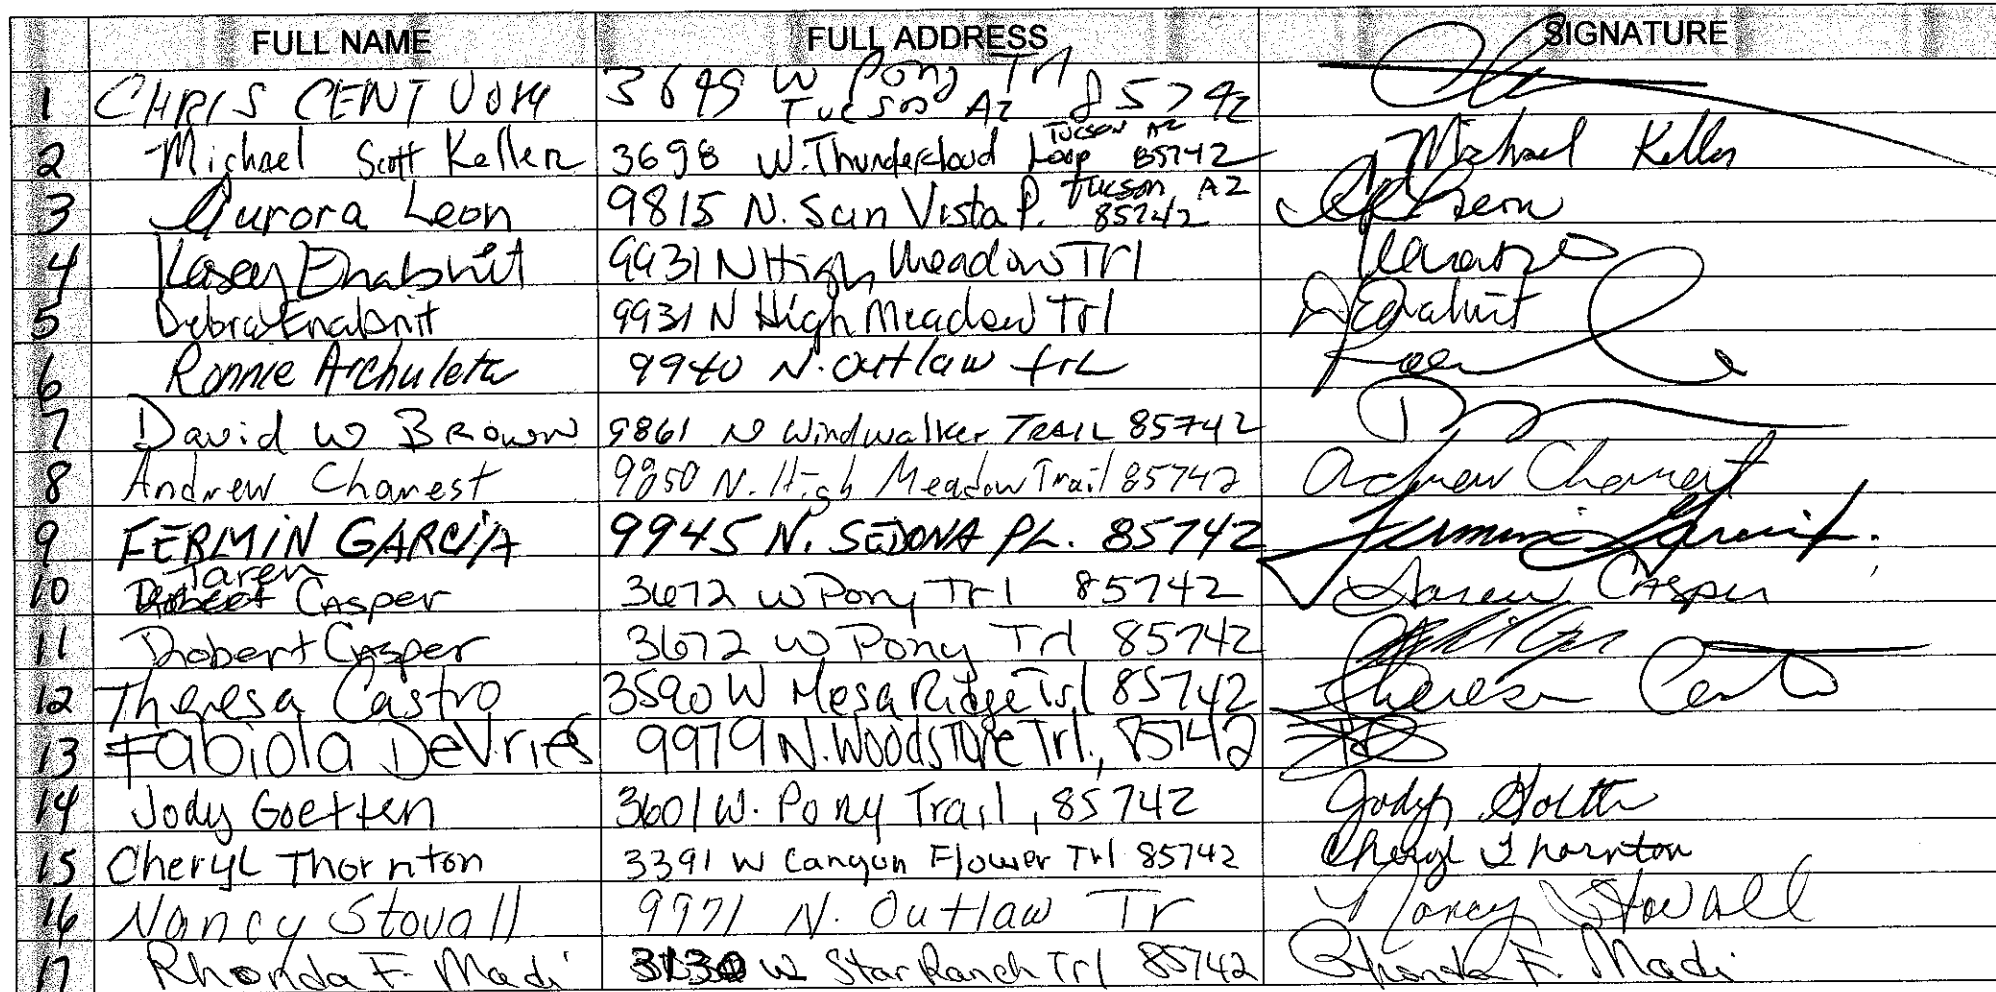 FULL NAME FULL ADDRESS SIGNATURE
1 CHRIS 3649 W Pony Trl Tucson AZ 85742
2 Michael Scott Keller 3698 W. Thundercloud Loop Tucson AZ 85742 Michael Keller
3 Aurora Leon 9815 N. Sun Vista P. Tucson AZ 85742 Leon
4 Kasey Enabnit 9931 N High Meadow Trl
5 Debra Enabnit 9931 N High Meadow Trl D Enabnit
6 Ronnie Archuleta 9940 N. Outlaw trL
7 David W Brown 9861 N Windwalker TRAIL 85742
8 Andrew Charest 9950 N. High Meadow Trail 85742 Andrew Charest
9 FERMIN GARCIA 9945 N. SEDONA PL. 85742 Fermin Garcia
10 Taren Casper 3672 W Pony Trl 85742 Taren Casper
11 Robert Casper 3672 W Pony Trl 85742
12 Theresa Castro 3590 W Mesa Ridge Trl 85742 Theresa Castro
13 Fabiola DeVries 9979 N. Woodstone Trl., 85742
14 Jody Goetten 3601 W. Pony Trail, 85742 Jody Goetten
15 Cheryl Thornton 3391 W Canyon Flower Trl 85742 Cheryl Thornton
16 Nancy Stovall 9971 N. Outlaw Tr Nancy Stovall
17 Rhonda F. Madi 3130 W Star Ranch Trl 85742 Rhonda F. Madi